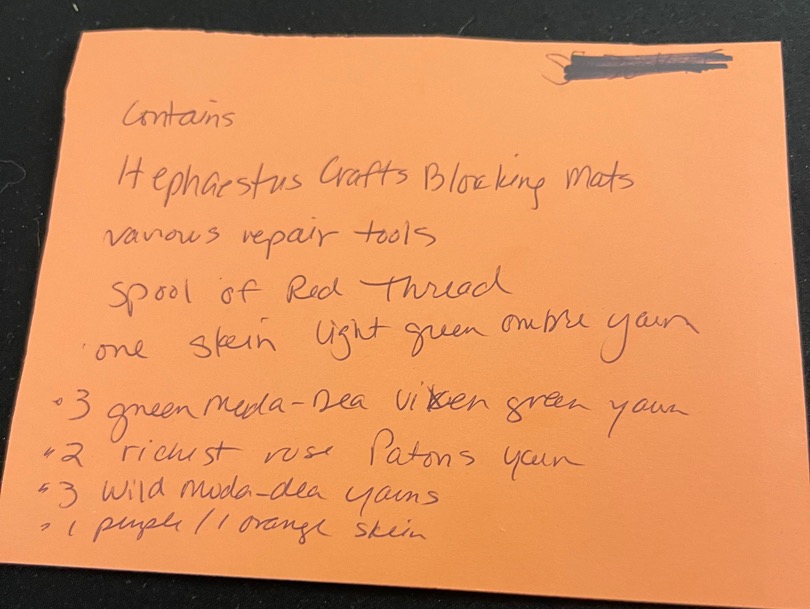 Contains
Hephaestus Crafts Blocking Mats
various repair tools
Spool of Red Thread
one skein light green ombre yarn
3 green Moda-Dea vixen green yarn
2 richest rose Patons yarn
3 Wild Moda-dea yarns
1 purple / 1 orange skein